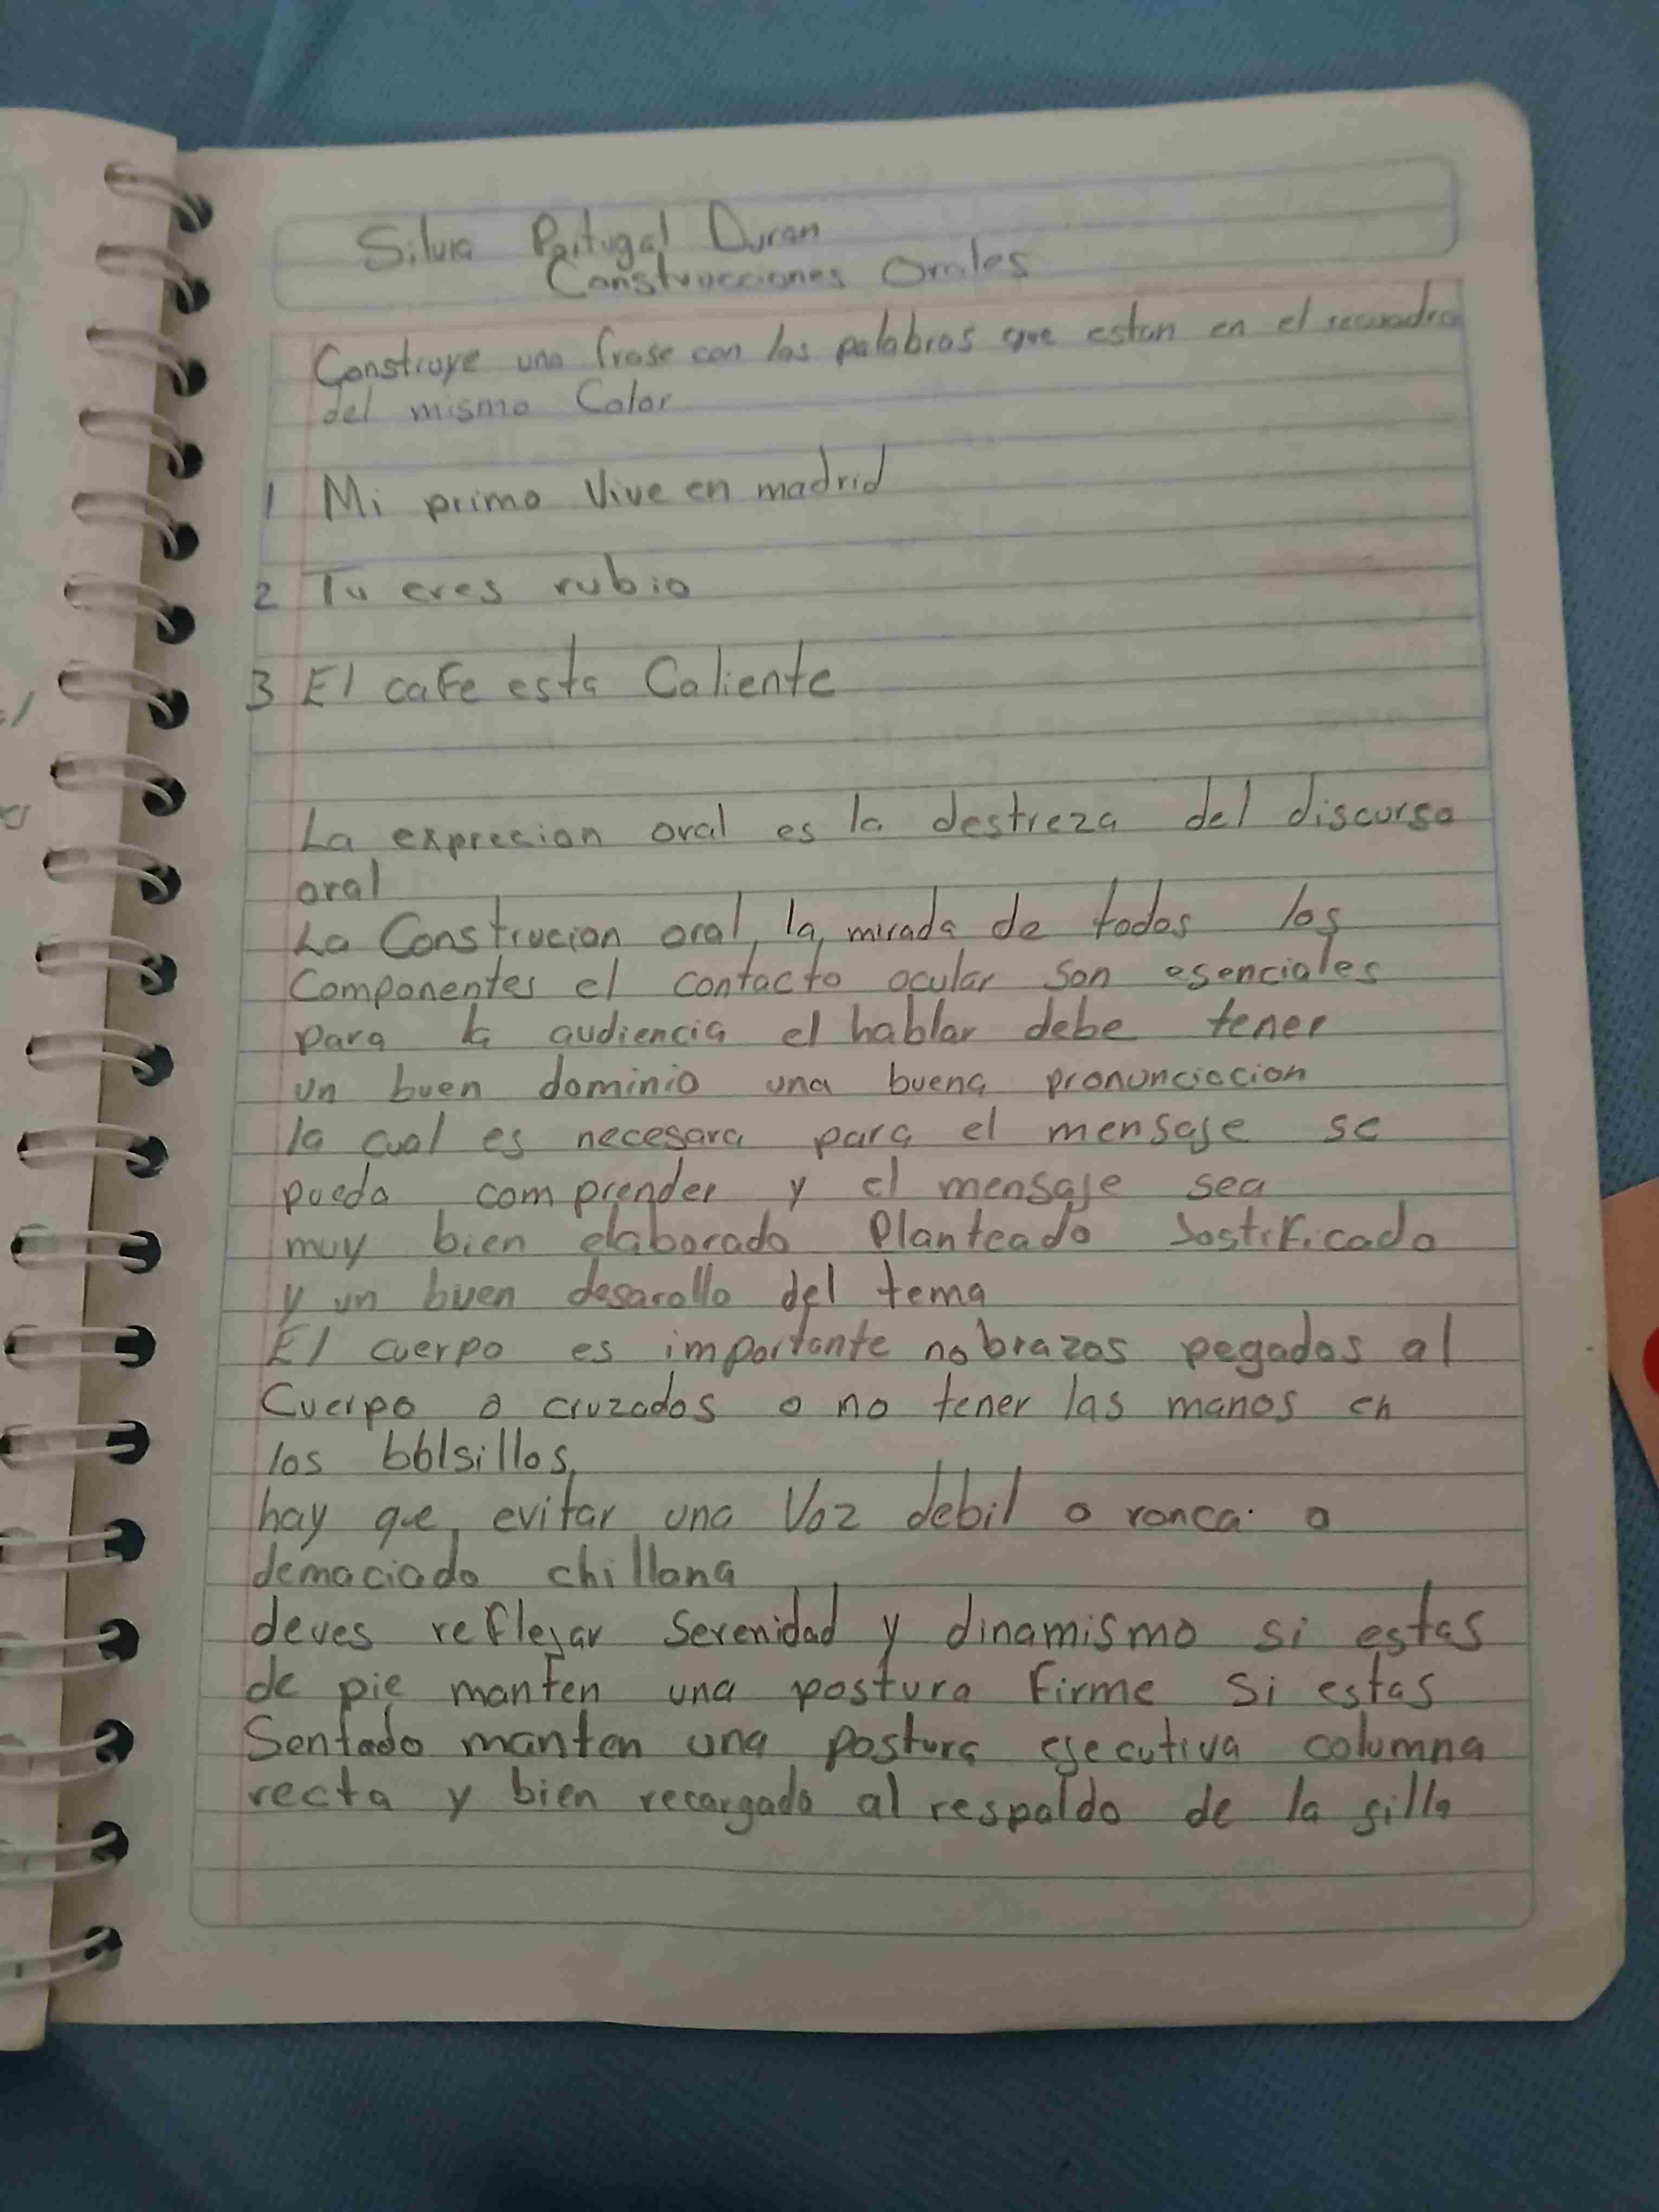 Silvia Portugal Duran
Construcciones Orales
Construye una frase con las palabras que estan en el recuadro
del mismo Color
1 Mi primo Vive en madrid
2 Tu eres rubio
3 El cafe esta Caliente
La exprecion oral es la destreza del discurso
oral
La Construcion oral, la mirada de todos los
Componentes el contacto ocular son esenciales
para la audiencia el hablar debe tener
un buen dominio una buena pronunciacion
la cual es necesara para el mensaje se
pueda comprender y el mensaje sea
muy bien elaborado Planteado Jostificado
y un buen desarollo del tema
El cuerpo es importante no brazos pegados al
Cuerpo o cruzados o no tener las manos en
los bolsillos,
hay que evitar una Voz debil o ronca o
demaciado chillona
deves reflejar Serenidad y dinamismo si estas
de pie manten una postura firme Si estas
Sentado manten una postura ejecutiva columna
recta y bien recargado al respaldo de la silla